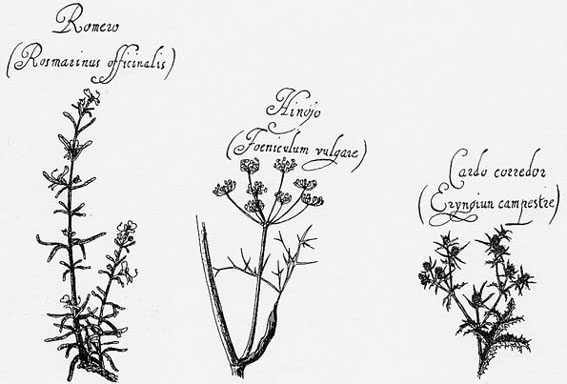 Romero
(Rosmarinus officinalis)
Hinojo
(Foeniculum vulgare)
Cardo corredor
(Eryngiun campestre)